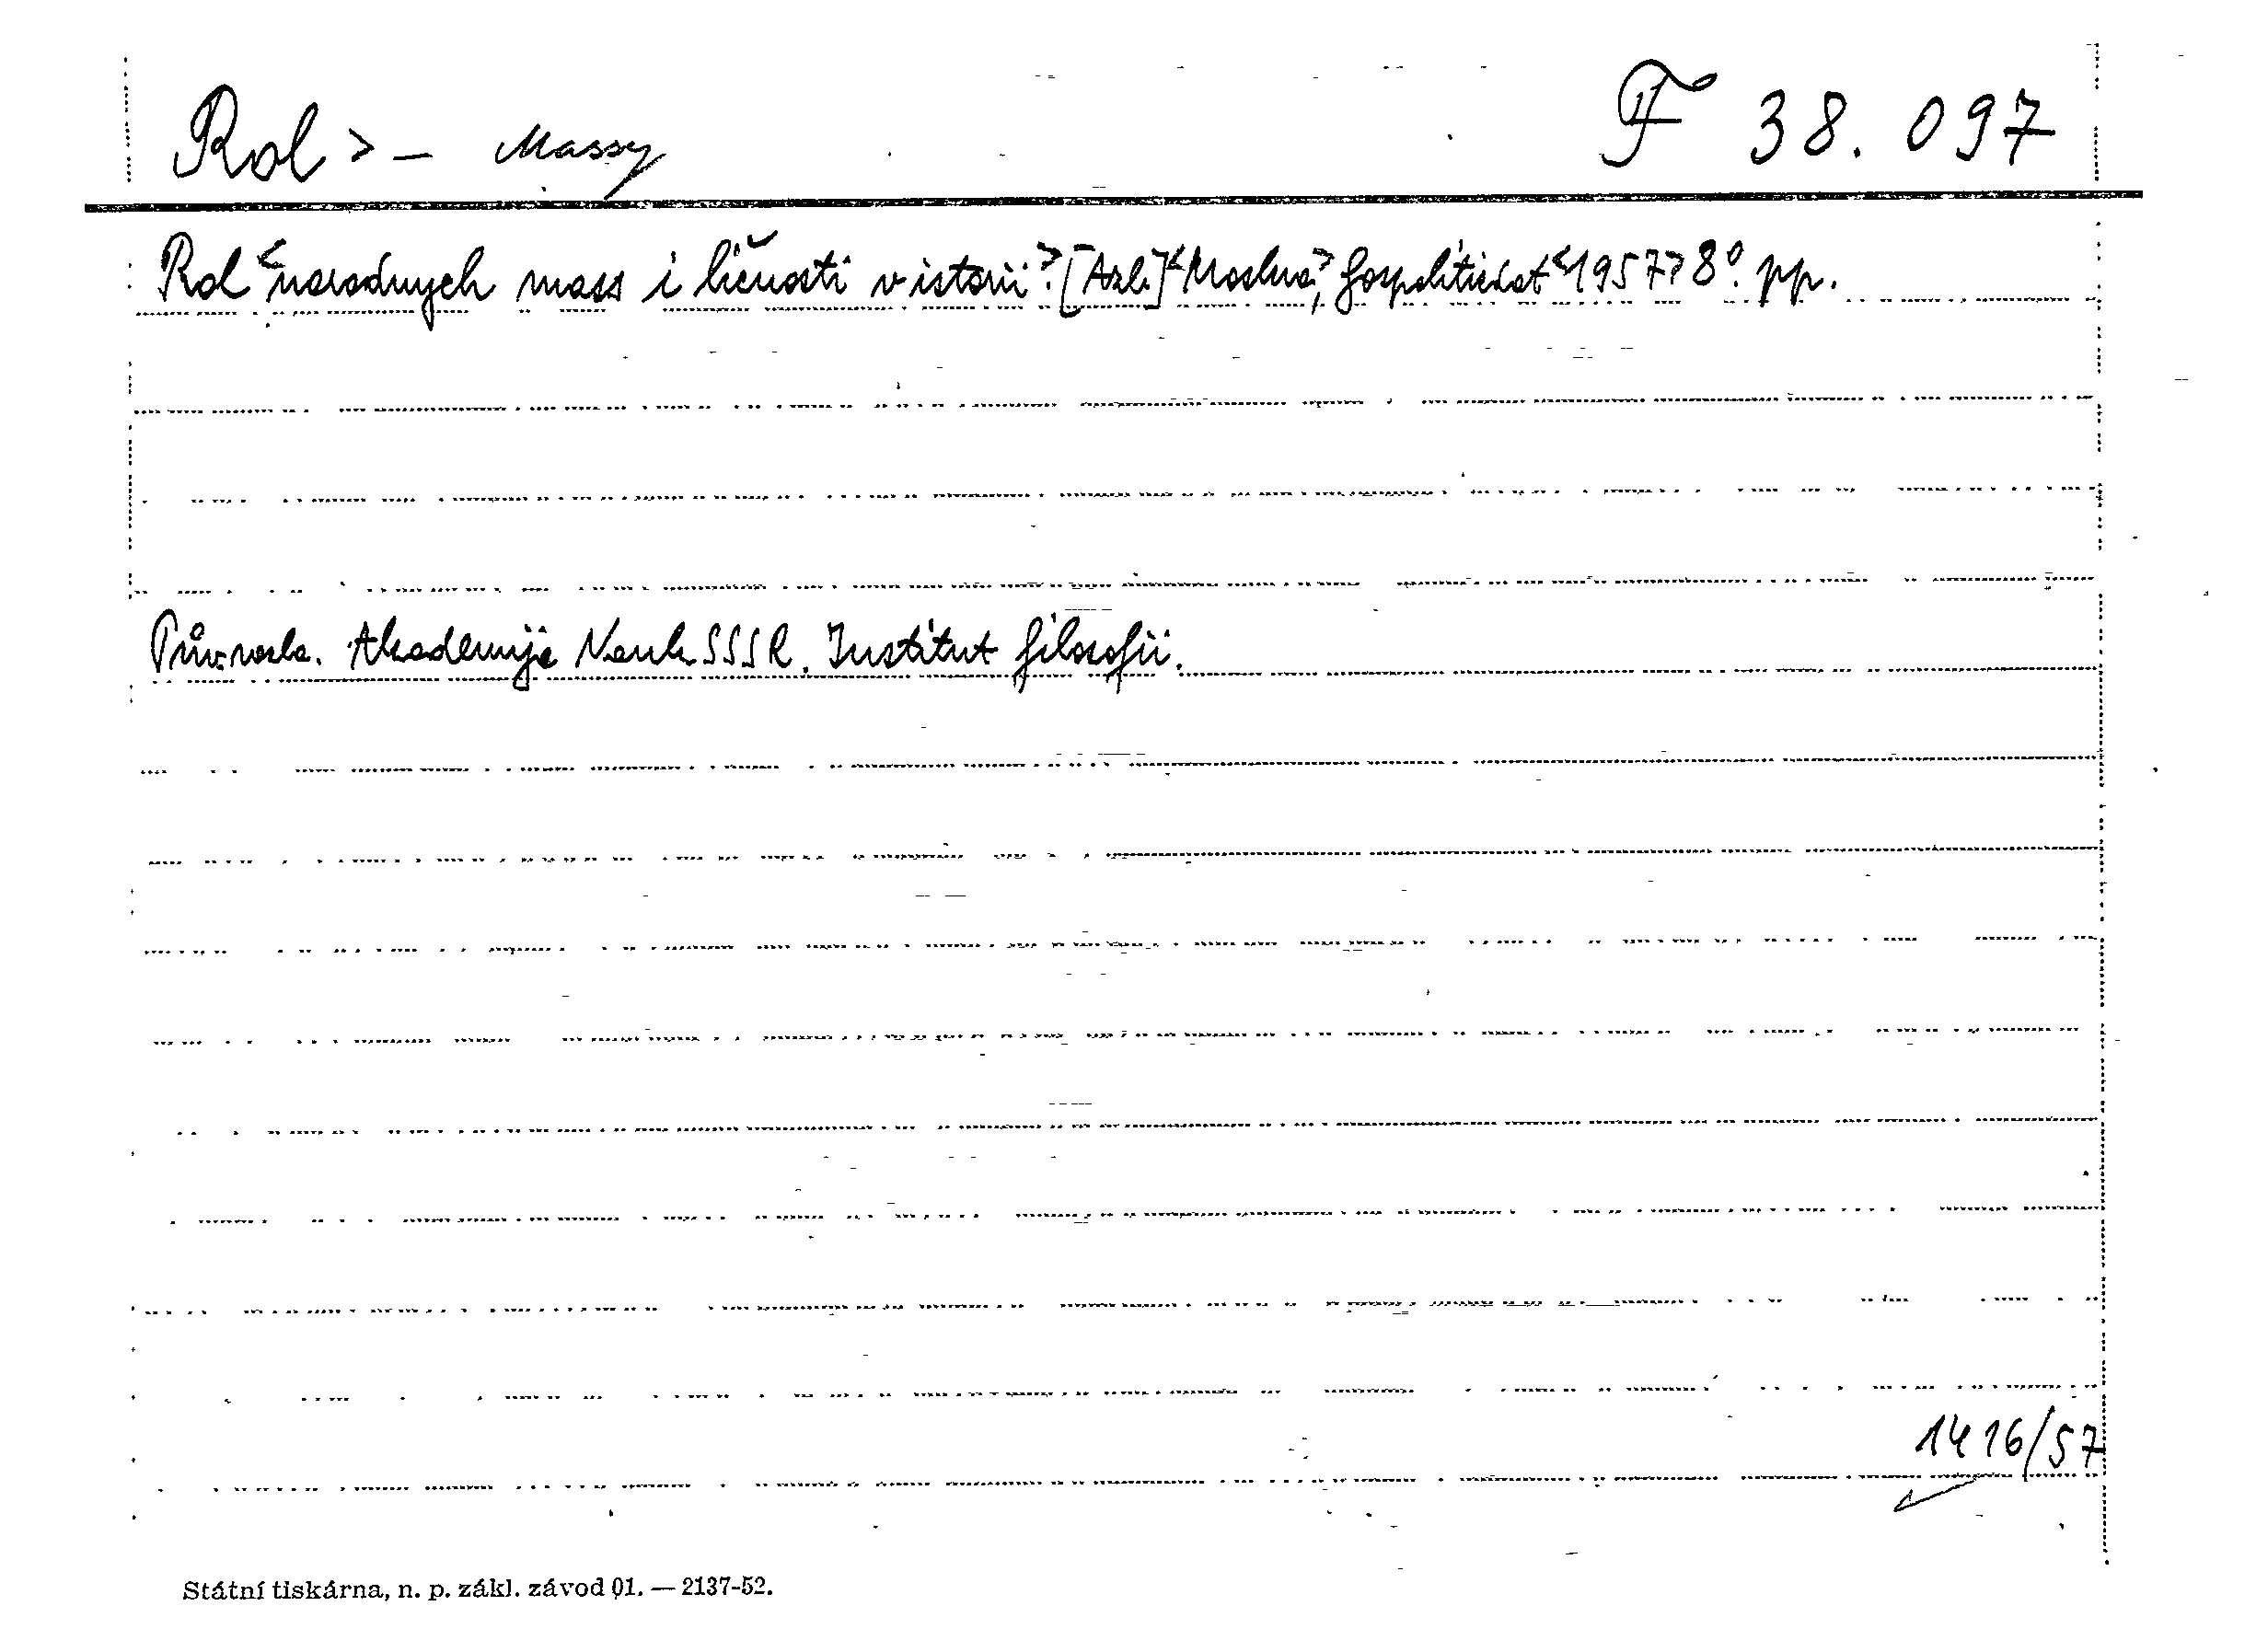 Rol > – Massy F 38.097
Rol <narodnych mass i ličnosti v istorii>. [Azb.] <Moskva>, Gospolitizdat <1957> 8°. pp.
Pův. nazva. Akademija Nauk SSSR. Institut filosofii.
1416/57
Státní tiskárna, n. p. zákl. závod 01. — 2137-52.